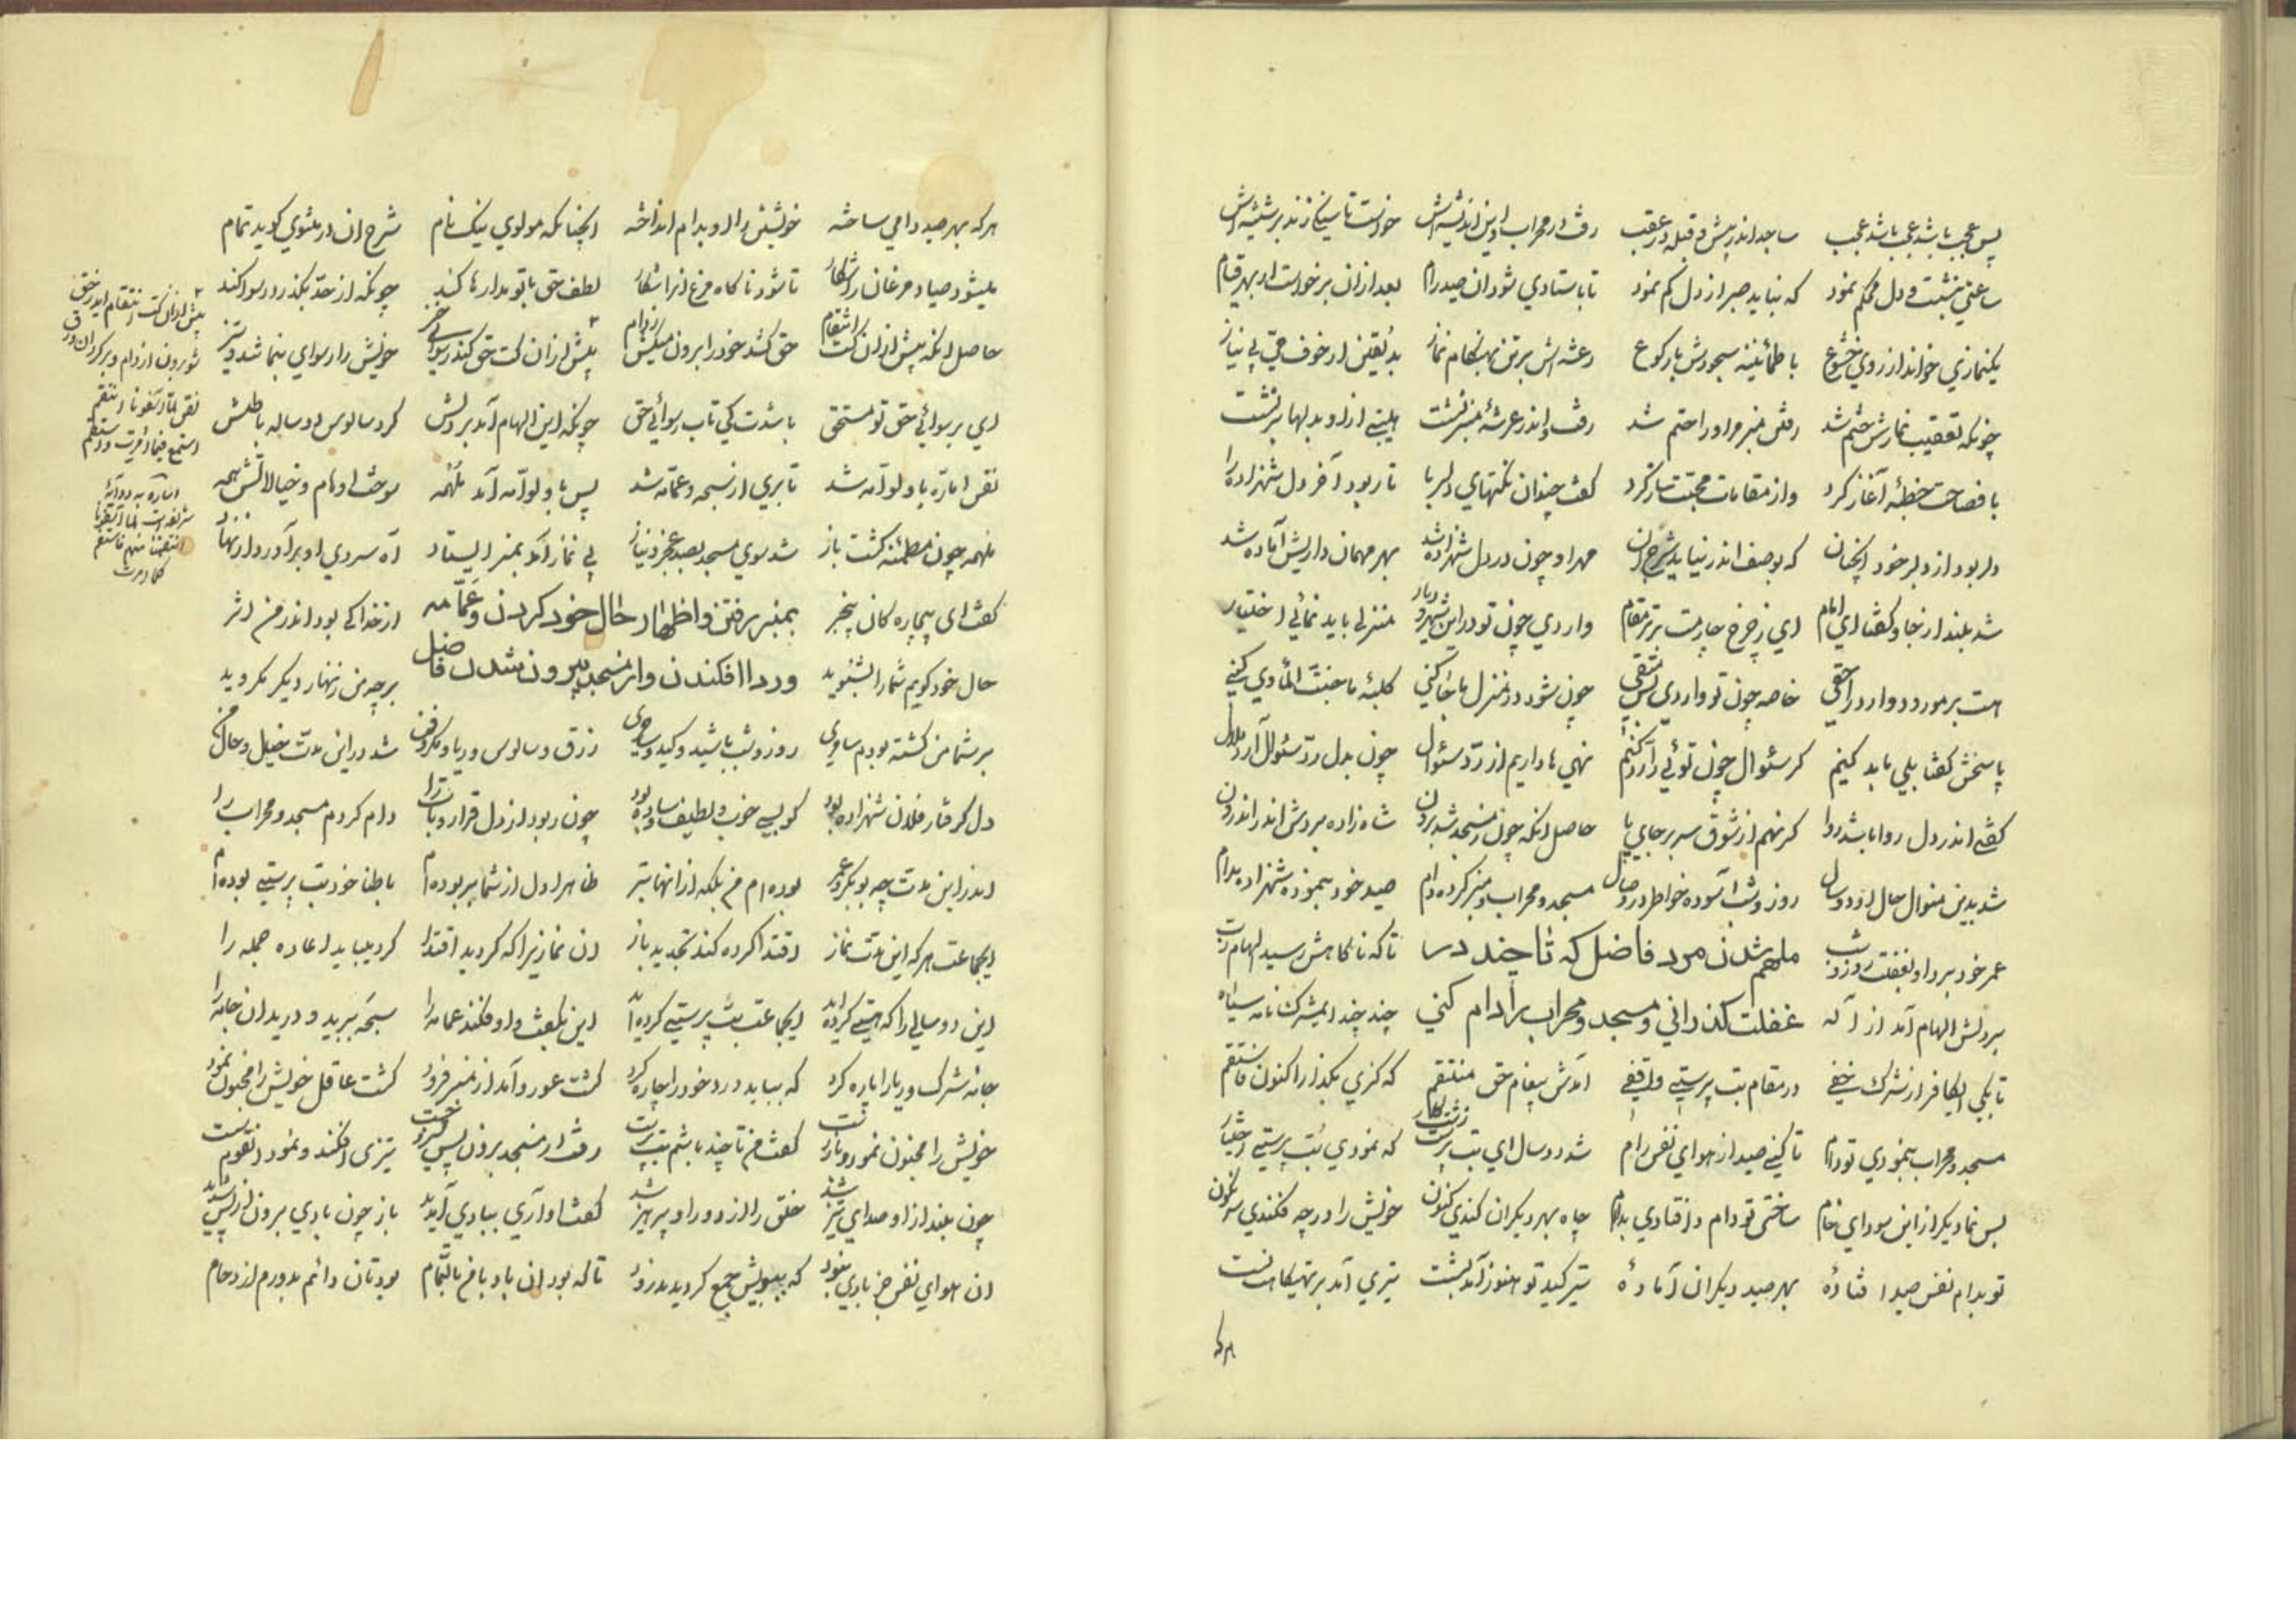 پس عجب باشد عجب باشد عجب ساجد اندر پیش و قبله در عقب رفت در محراب و این اندیشه‌اش خواست تا سنگی زند بر شیشه‌اش
ساعتی بنشست و دل محکم نمود که نباید صبر از دل کم نمود تا باستادی شود آن صید رام بعد از آن برخواست او بهر قیام
یکنمازی خواند از روی خشوع با طمأنینه سجودش با رکوع رعشه‌اش بر تن بهنگام نماز بد یقین از خوف حی بی نیاز
چونکه تعقیب نمازش ختم شد رفتن منبر مر او را حتم شد رفت و اندر عرشهٔ منبر نشست هیبتی از او بدلها برنشست
با فصاحت خطبه آغاز کرد واز مقامات محبت ساز کرد گفت چندان نکتهای دلربا تا ربود آخر دل شهزاده را
دلربود از دلبر خود آنچنان که بوصف اندر نیاید شرح آن مهر او چون در دل شهزاده شد بهر مهمان داریش آماده شد
شد بلند از جا و گفتا ای امام ای ز چرخ چارمت برتر مقام واردی چون تو در این شهر و دیار منزلی باید نمائی اختیار
هست بر مورود وارد را حقی خاصه چون تو واردی بس متقی چون شود در منزل ما جا کنی کلبهٔ ما جنت المأوی کنی
پاسخش گفتا بلی باید کنیم گر سئوال چون توئی را رد کنیم نهی ها داریم از رد سئوال چون بدل رد سئوال آرد ملال
گفتی اندر دل روا باشد روا گر نهم از شوق سر بر جای پا حاصل آنکه چون ز مسجد شد برون شاه زاده بردش اندر اندرون
شد بدین منوال حال او دو سال روز و شب آسوده خواطر در وصال مسجد و محراب و منبر کرده دام صید خود بنموده شهزاده بدام
عمر خود برد او بغفلت روز و شب ملهم شدن مرد فاضل که تا چند در تا که ناگاهش رسید الهام رب
بر دلش الهام آمد از آله غفلت گذرانی و مسجد و محراب را دام کنی چند چند ایمشرک نامه سیاه
تا بکی ایکافر از شرک خفی در مقام بت پرستی واقفی آمدش پیغام حق منتقم که گزی بگذار اکنون فاستقم
مسجد و محراب بنمودی تو دام تا کنی صید از هوای نفس رام شد دو سال ای بت پرست زشت کار که نمودی بت پرستی اختیار
بس نما دیگر از این سودای خام ساختی تو دام و افتادی بدام چاه بهر دیگران کندی کنون خویش را در چه فکندی سرنگون
تو بدام نفس صید افتادهٔ بهر صید دیگران آمادهٔ تیر کید تو هنوز آمد بشست تیری آمد بر تهیگاهت نشست
هرکه
هرکه بهر صید دامی ساخته خویشتن را او بدام انداخته آنچنانکه مولوی نیک نام شرح آن در مثنوی گوید تمام
میشود صیاد مرغان را شکار تا شود ناگاه مرغ او را شکار لطف حق با تو مدارها کند چونکه از حد بگذرد رسوا کند
حاصل آنکه پیش از آن کت انتقام حق کشد خود را برون میکش ز دام پیش از آن کت حق کند رسوای خر خویش را رسوای بنما شد و تر
ای بر سوائی حق تو مستحق باشدت کی تاب رسوائی حق چونکه این الهام آمد بر دلش کرد سالوس دو ساله باطلش
نفس اماره با و لوامه شد تا بری از سبحه و عمامه شد پس با و لوامه آمد ملهمه سوخت اوهام و خیالاتش همه
ملهمه چون مطمئنه گشت باز شد سوی مسجد بصد عجز و نیاز بی نماز آمد بمنبر ایستاد آه سردی او برآورد از نهاد
گفت ای بیچاره کان بیخبر بمنبر رفتن و اظهار حال خود کردن و عمامه از خدا کی بود اندر من اثر
حال خود گویم شما را بشنوید وردا افکندن واز مسجد بیرون شدن فاضل بر چه من زنهار دیگر مگروید
بر شما من گشته بودم روز و شب باشید و کید زرق و سالوس و ریا و مکر و فن شد در این مدت
دل گرفتار فلان شهزاده بود کو بسی خوب و لطیف و ساده بود چون ربود از دل قرار و تاب را دام کردم مسجد و محراب را
اندر این مدت چه بوبکر و عمر بوده‌ام من بلکه از آنها بتر ظاهرا دل از شما بر بوده‌ام باطنا خود بت پرستی بوده‌ام
ایجماعت هرکه این مدت نماز اقتدا کرده کند تجدید باز آن نمازیرا که کردید اقتدا کرد میباید اعاده جمله را
این دو سالی را که هستی کرده‌اید ایجماعت بت پرستی کرده‌اید این بگفت و او فکند عمامه را سبحه ببرید و درید آن جامه را
جامهٔ شرک و ریا را پاره کرد که بباید درد خود را چاره کرد گشت عور و آمد از منبر فرود گشت عاقل خویش را مجنون نمود
خویش را مجنون نمود و گفت من تا چند باشم بت پرست رفت از مسجد برون پس تیزی افکند و نمود
چون بلند از او صدای تیز شد خلق را از دور او پرهیز شد گفت او آری ببادی آمدید باز چون بادی برون از پس شدید
آن هوای نفس جز بادی نبود که ببویش جمع گردیدید زود تا که بود آن باد با من بالتمام بودتان دائم بدورم ازدحام
پیش از آن کت انتقام آید ز حق